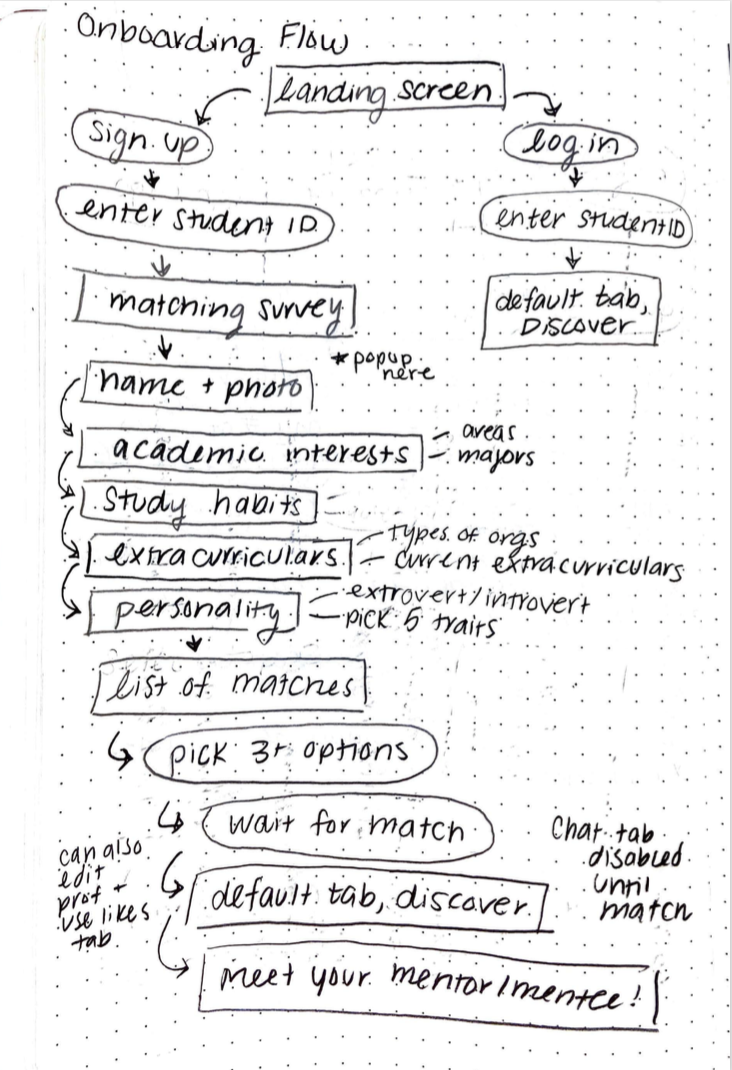 Onboarding Flow
landing screen
sign up
log in
enter student ID
enter student ID
matching survey
default tab,
DISCOVER
*popup
here
name + photo
academic interests
- areas
- majors
study habits
extracurriculars
- types of orgs
- current extracurriculars
personality
- extrovert/introvert
- pick 5 traits
list of matches
pick 3+ options
wait for match
Chat tab
disabled
until
match
can also
edit
prof +
use likes
tab
default tab, discover
meet your mentor/mentee!